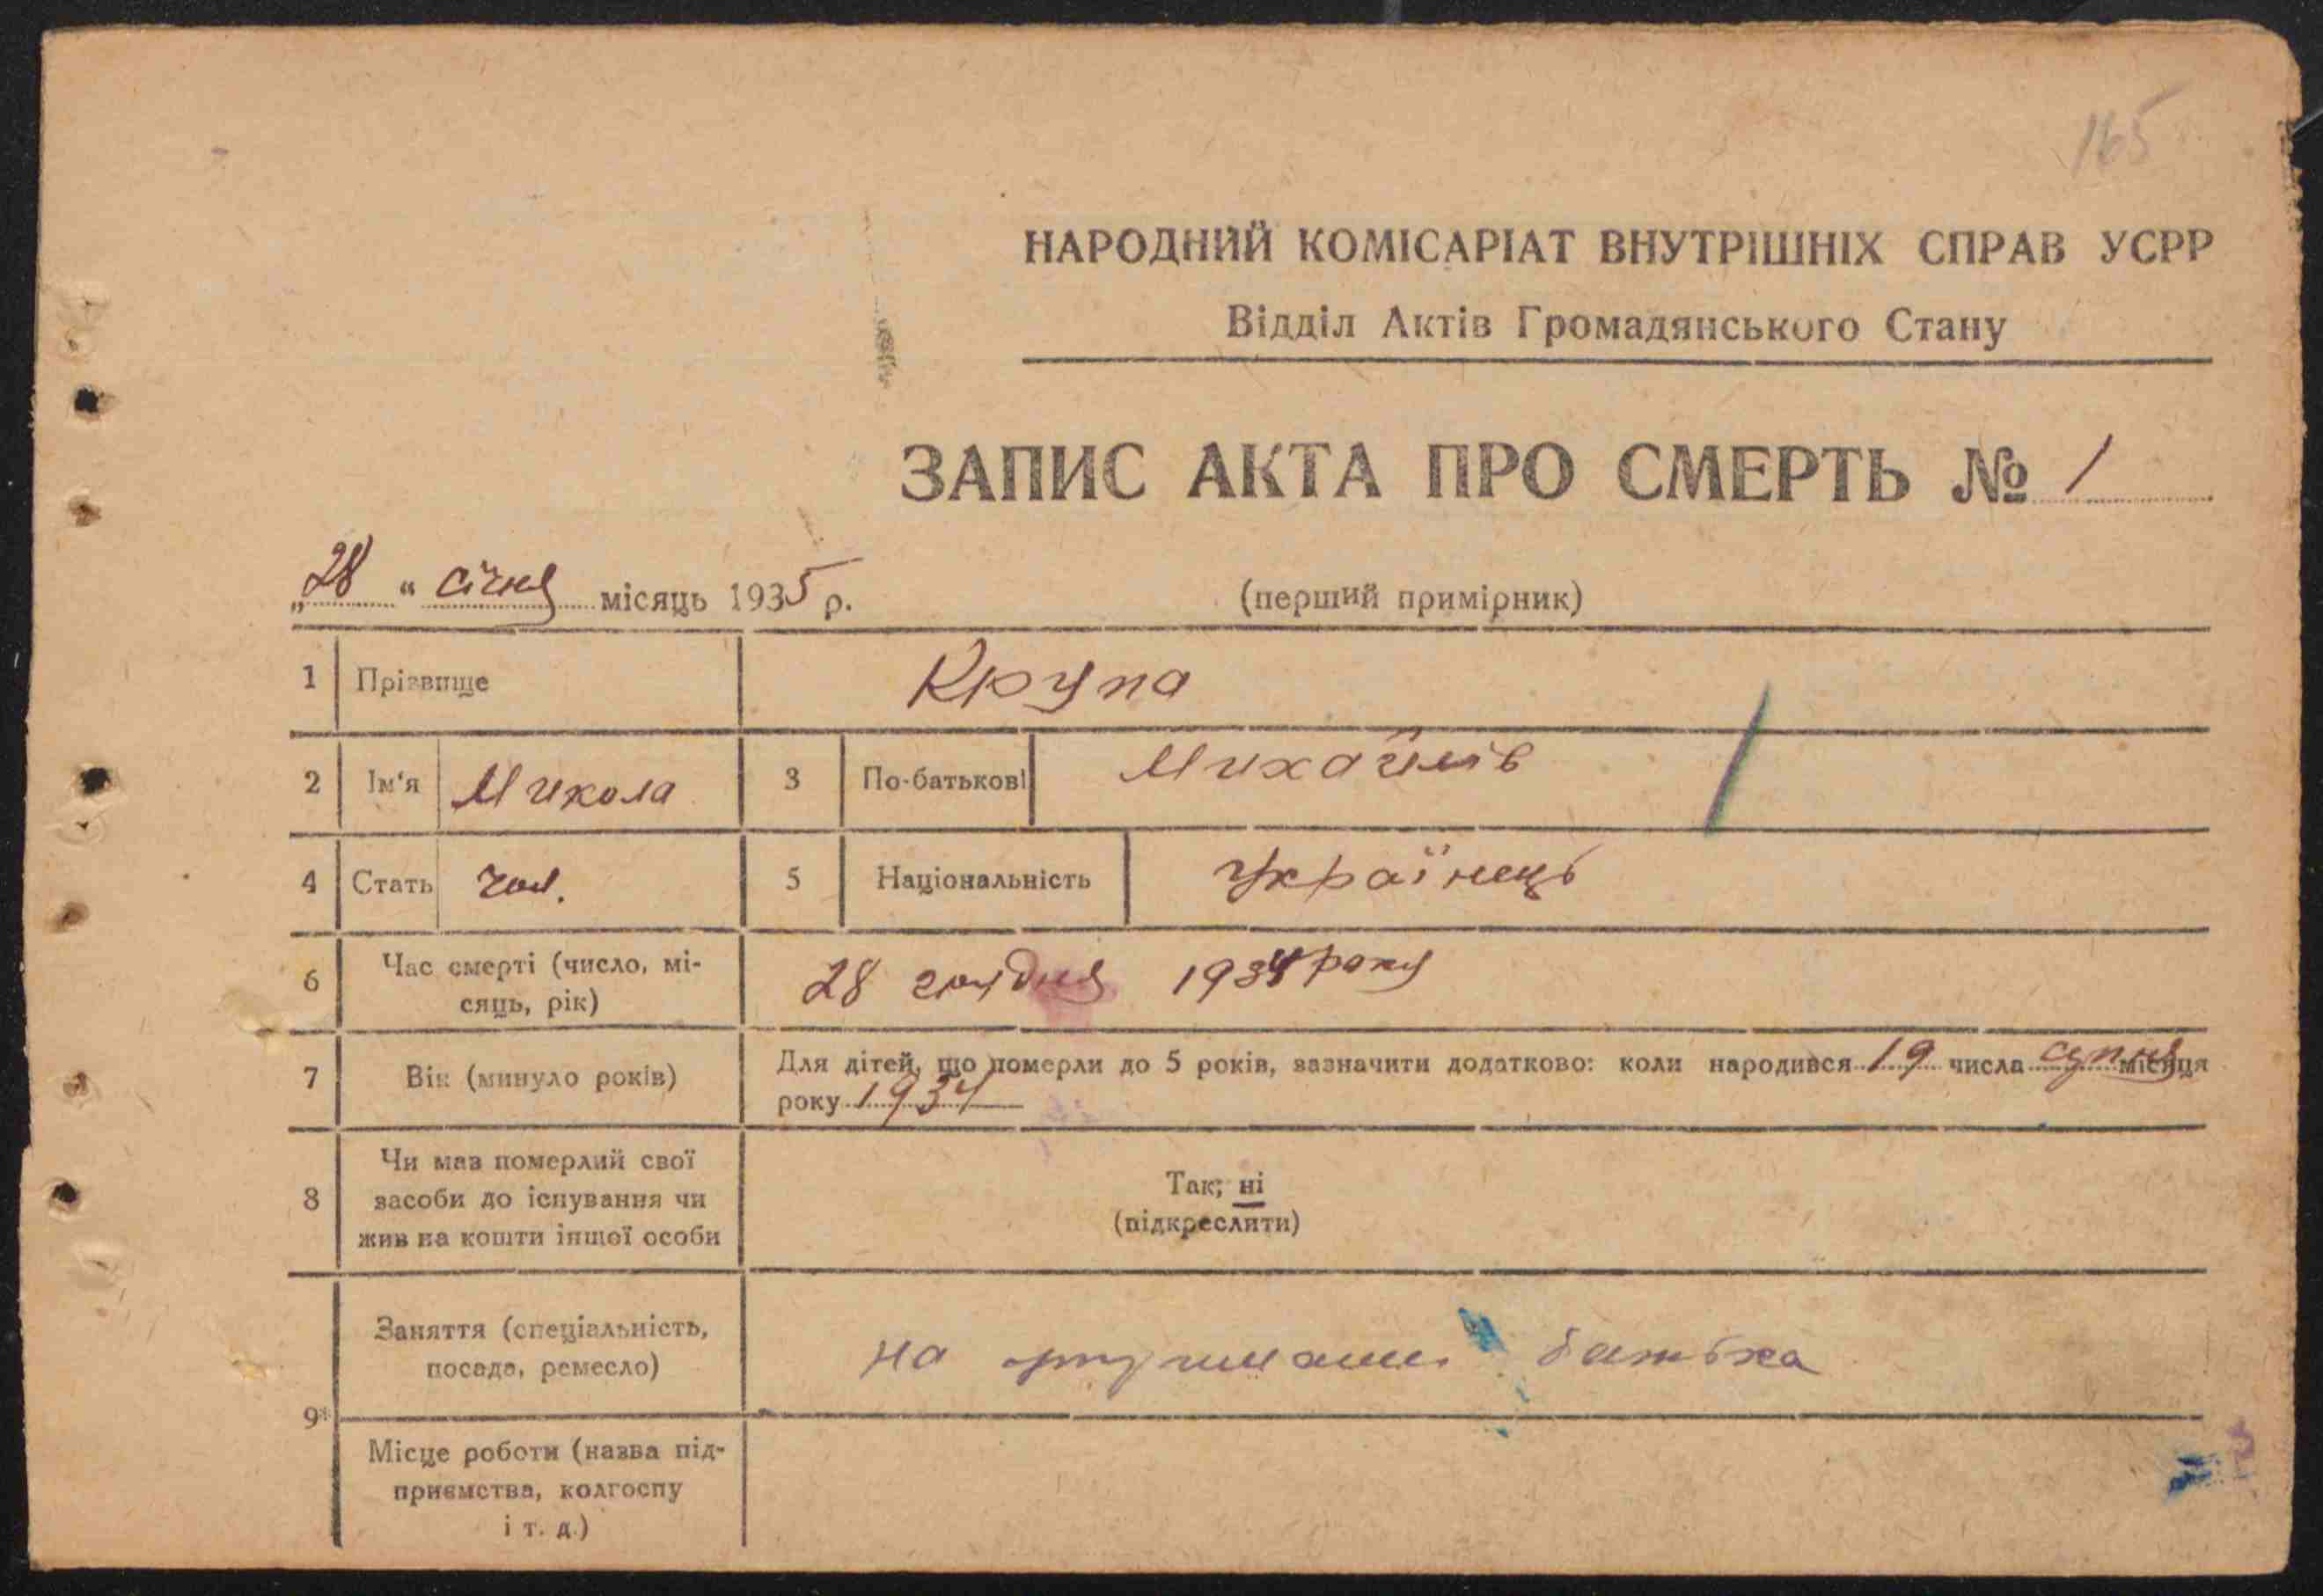 165
НАРОДНИЙ КОМІСАРІАТ ВНУТРІШНІХ СПРАВ УСРР
Відділ Актів Громадянського Стану
ЗАПИС АКТА ПРО СМЕРТЬ № 1
„28“ січня місяць 1935 р.
(перший примірник)
1 Прізвище Крупа
2 Ім'я Микола 3 По-батькові Михайлів
4 Стать чол. 5 Національність Українець
6 Час смерті (число, мі-
сяць, рік) 28 грудня 1934 року
7 Вік (минуло років) Для дітей, що померли до 5 років, зазначити додатково: коли народився 19 числа серпня місяця
року 1934
8 Чи мав померлий свої
засоби до існування чи
жив на кошти іншої особи
Так; ні
(підкреслити)
9 Заняття (спеціальність,
посада, ремесло) на батька
Місце роботи (назва під-
приємства, колгоспу
і т. д.)